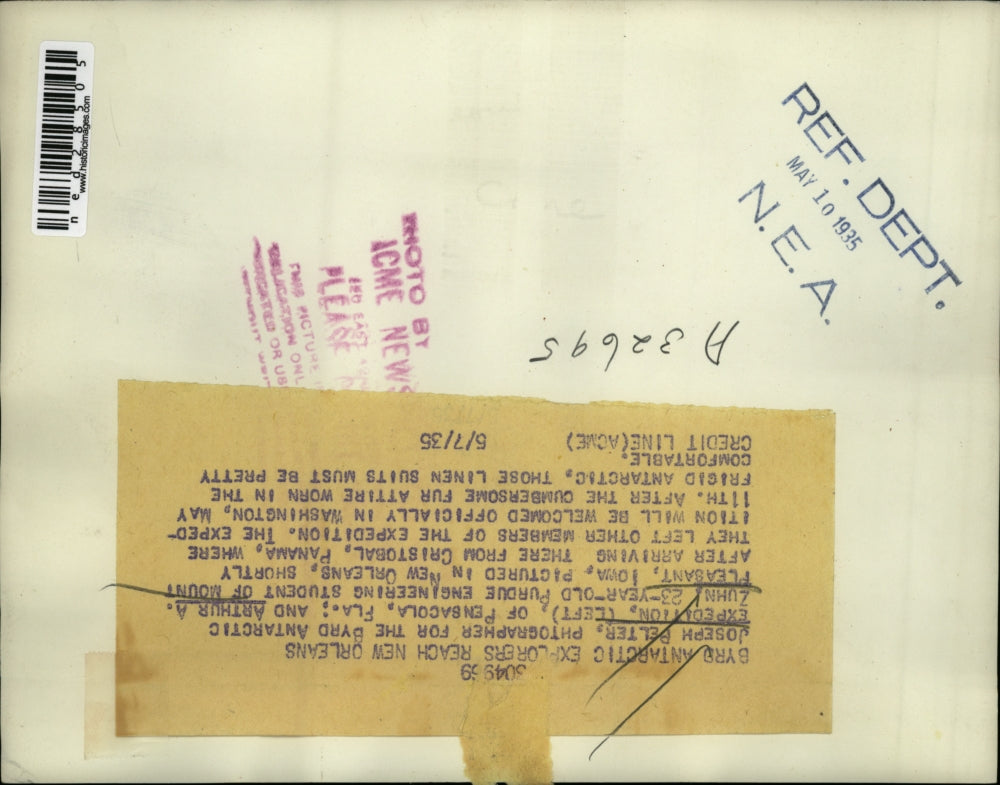 504969
BYRD ANTARCTIC EXPLORERS REACH NEW ORLEANS
JOSEPH PELTER, PHTOGRAPHER FOR THE BYRD ANTARCTIC
EXPEDITION, (LEFT), OF PENSACOLA, FLA.; AND ARTHUR A.
ZUHN, 23-YEAR-OLD PURDUE ENGINEERING STUDENT OF MOUNT
PLEASANT, IOWA, PICTURED IN NEW ORLEANS, SHORTLY
AFTER ARRIVING THERE FROM CRISTOBAL, PANAMA, WHERE
THEY LEFT OTHER MEMBERS OF THE EXPEDITION. THE EXPED-
ITION WILL BE WELCOMED OFFICIALLY IN WASHINGTON, MAY
11TH. AFTER THE CUMBERSOME FUR ATTIRE WORN IN THE
FRIGID ANTARCTIC, THOSE LINEN SUITS MUST BE PRETTY
COMFORTABLE.
CREDIT LINE(ACME) 5/7/35
A 32695
REF. DEPT.
MAY 10 1935
N. E. A.
PHOTO BY
ACME NEWS
PLEASE
THIS PICTURE
OR US
ned28505
www.historicimages.com